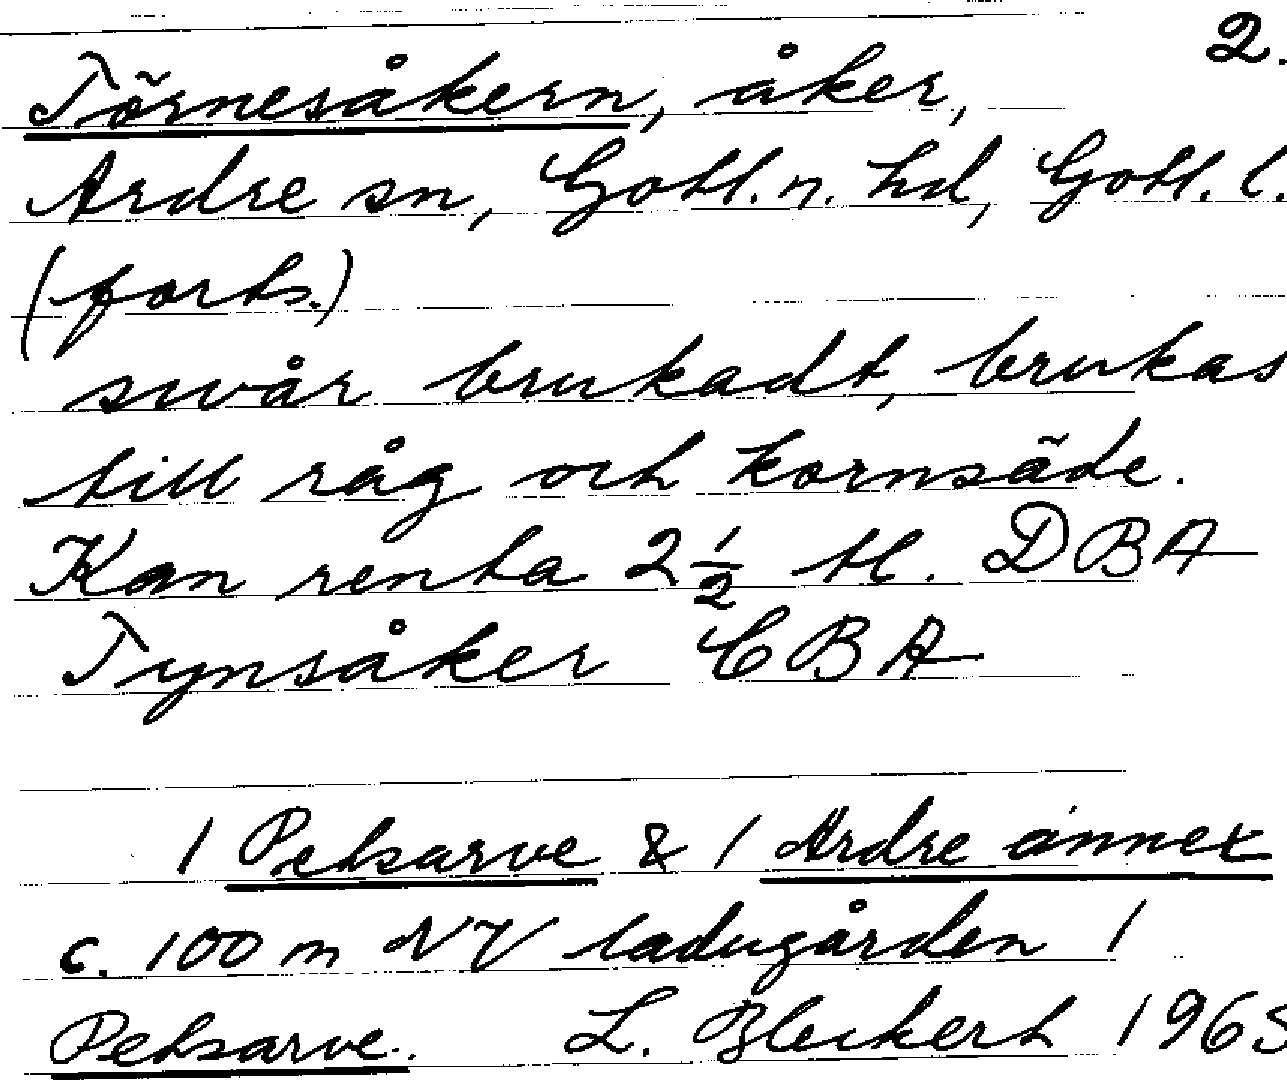 2.
Törnesåkern, åker,
Ardre sn, Gotl. n. hd, Gotl. l.
(forts.)
svår brukadt, brukas
till råg och kornsäde.
Kan renta 2 1/2 tl. DBA
Tynsåker CBA
1 Petsarve & 1 Ardre annex
c. 100 m NV ladugården 1
Petsarve. L. Bleckert 1965